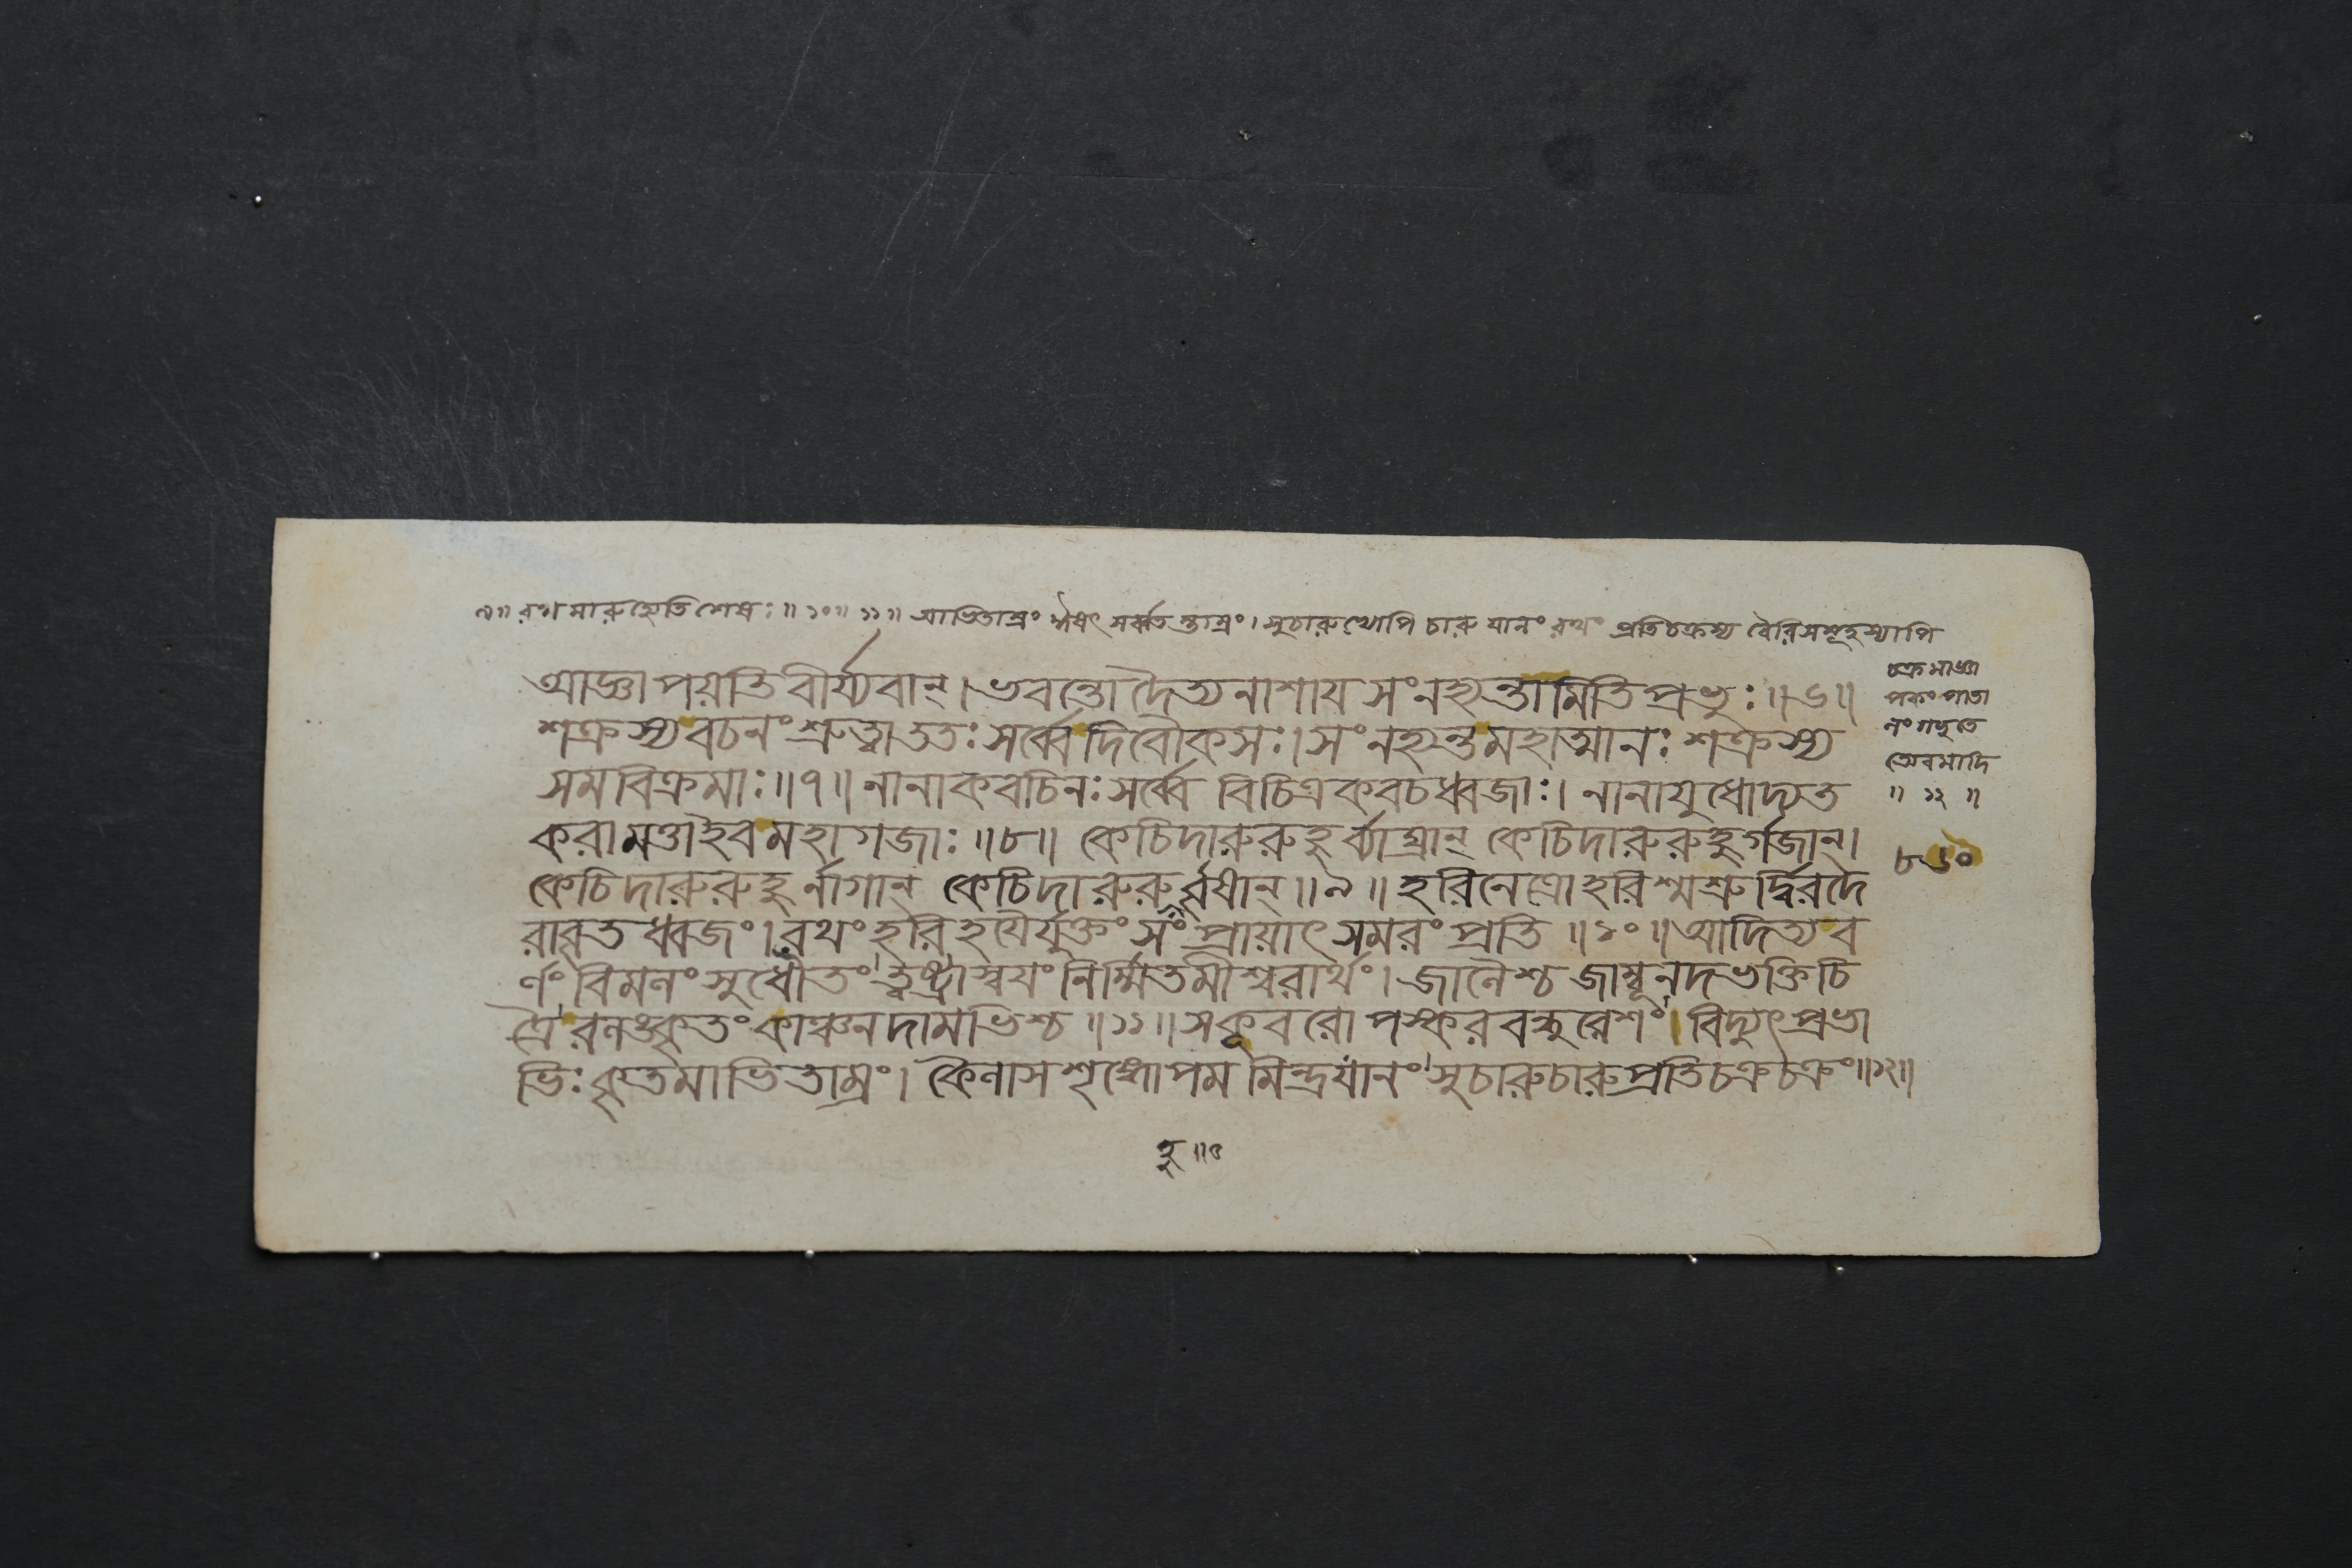 ৯॥ রথমারুহ্যেতি শেষঃ॥১০॥১১॥ আভিতাম্রং ঈষৎ সর্ব্বতস্তাম্রং। সুচারুভ্যোপি চারু যানং রথং প্রতিচক্রস্য বৈরিসমূহস্যাপি
চক্রমাজ্ঞা
পকং
অেবমাদি
॥ ১২ ॥
৮৬০
আজ্ঞাপয়তি বীর্য্যবান্। ভবন্তো দৈত্যনাশায সংনহ্যন্তামিতি প্রভুঃ॥৬॥
শক্রস্য বচনং শ্রুত্বা ততঃ সর্ব্বে দিবৌকসঃ। সংনহ্যন্ত মহাত্মানঃ শক্রস্য
সমবিক্রমাঃ॥৭॥ নানাকবচিনঃ সর্ব্বে বিচিত্রকবচধ্বজাঃ। নানাযুধোদ্যত
করা মত্তা ইব মহাগজাঃ॥৮॥ কেচিদারুরুহুর্ব্যাঘ্রান্ কেচিদারুরুহুর্গজান্।
কেচিদারুরুহুর্নাগান্ কেচিদারুরুর্বৃষান্॥৯॥ হরিনেত্রো হরিশ্মশ্রুর্দ্বিরদৈ
রাবৃতধ্বজং। রথং হরিহযৈর্যুক্তং সংপ্রায়াৎ সমরং প্রতি॥১০॥ আদিত্যব
র্ণং বিমলং সুধৌতং ত্বষ্ট্রা স্বযং নির্ম্মিতমীশ্বরার্থং। জালৈশ্চ জাম্বূনদভক্তিচি
ত্রৈরলঙ্কৃতং কাঞ্চনদামভিশ্চ॥১১॥ সকূবরোপস্করবন্ধুরেশং। বিদ্যুৎপ্রভা
ভিঃ কৃতমাভিতাম্রং। কৈলাসশৃঙ্গোপমমিন্দ্রযানং সুচারু চারুপ্রতিচক্রচক্রং॥১২॥
হু॥০